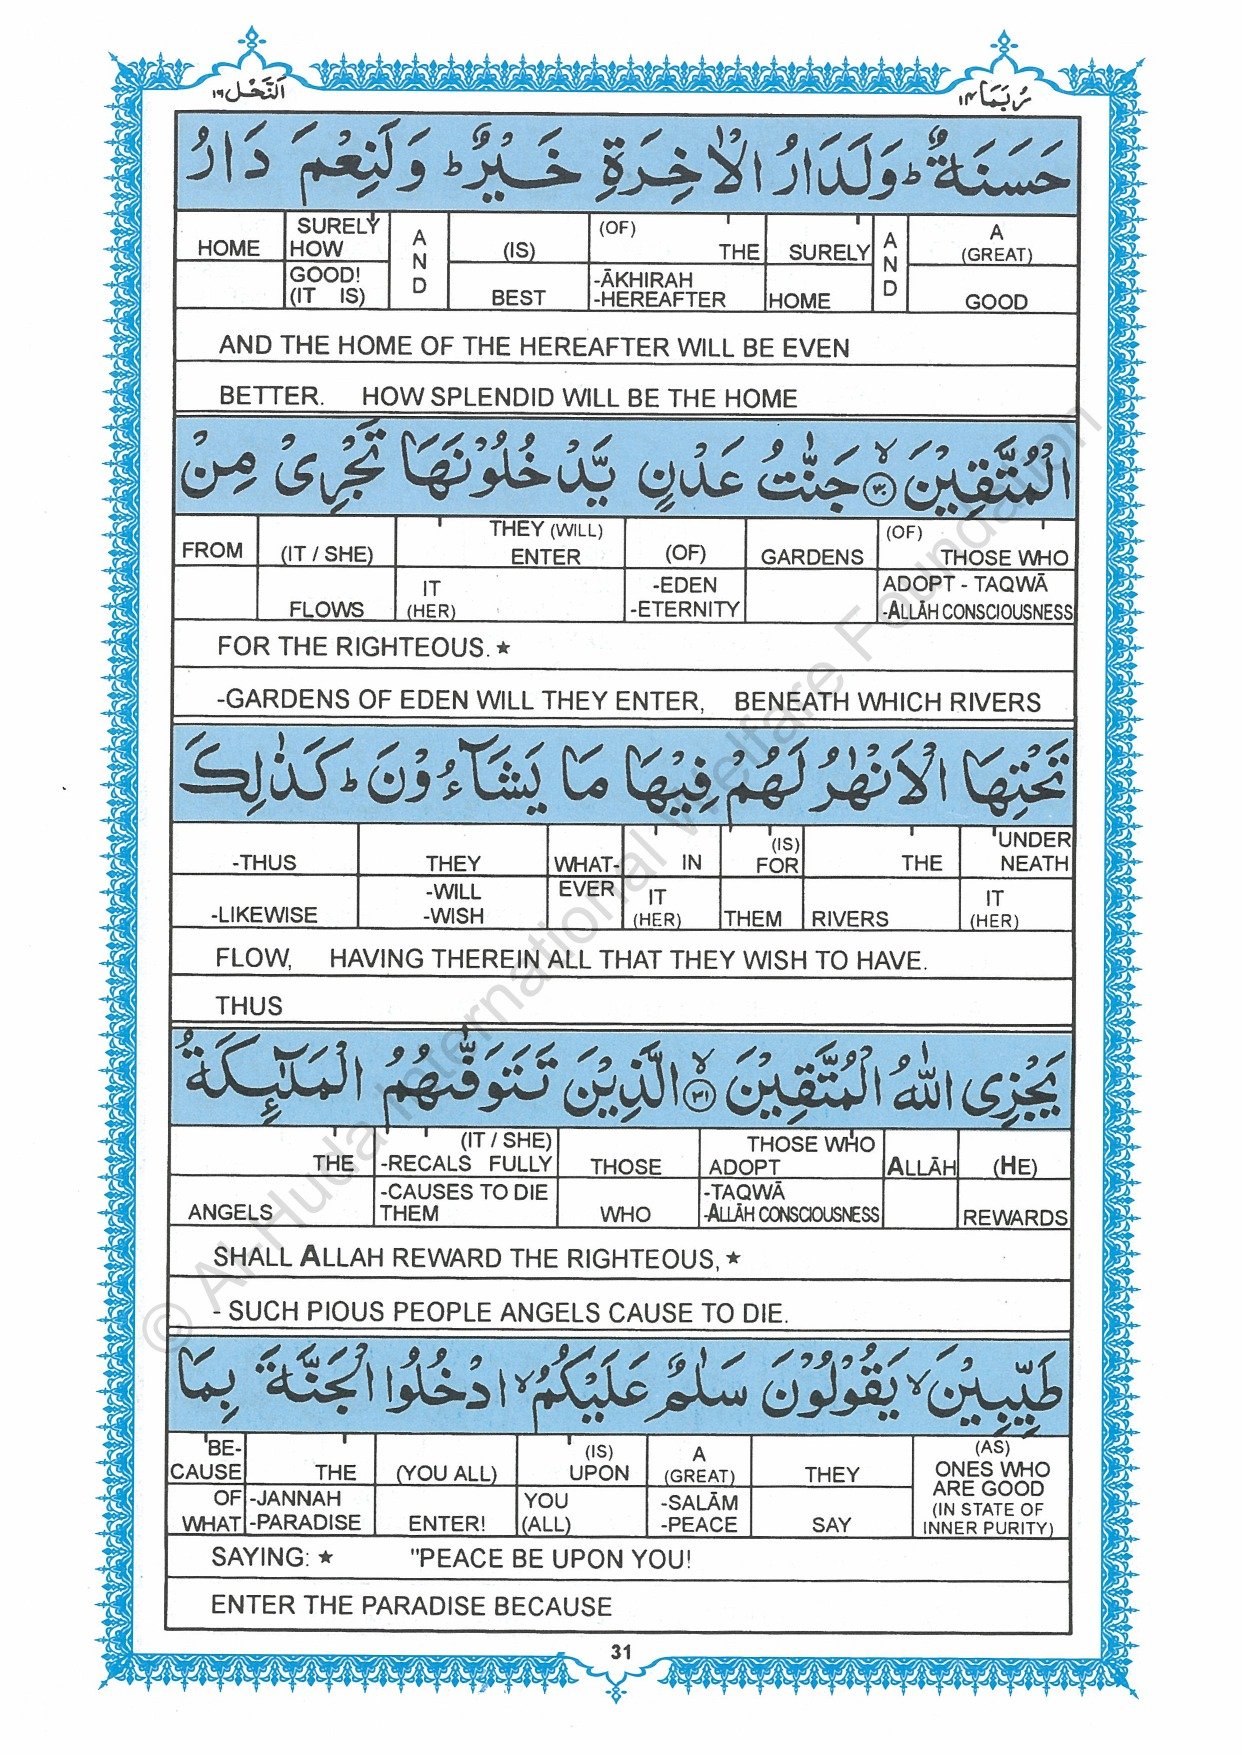 رُبَمَا ١٤
اَلنَّحْل ١٦
حَسَنَةٌ ؕ وَلَدَارُ الْاٰخِرَةِ خَيْرٌ ؕ وَلَنِعْمَ دَارُ
HOME SURELY HOW AND (IS) (OF) THE SURELY AND A (GREAT)
GOOD! (IT IS) BEST -ĀKHIRAH -HEREAFTER HOME GOOD
AND THE HOME OF THE HEREAFTER WILL BE EVEN
BETTER. HOW SPLENDID WILL BE THE HOME
الْمُتَّقِيْنَ ۙ ﴿٣٠﴾ جَنّٰتُ عَدْنٍ يَّدْخُلُوْنَهَا تَجْرِيْ مِنْ
FROM (IT / SHE) THEY (WILL) ENTER (OF) GARDENS (OF) THOSE WHO
FLOWS IT (HER) -EDEN -ETERNITY ADOPT - TAQWĀ -ALLĀH CONSCIOUSNESS
FOR THE RIGHTEOUS. ★
-GARDENS OF EDEN WILL THEY ENTER, BENEATH WHICH RIVERS
تَحْتِهَا الْاَنْهٰرُ لَهُمْ فِيْهَا مَا يَشَآءُوْنَ ؕ كَذٰلِكَ
-THUS THEY WHAT- IN (IS) FOR THE UNDER NEATH
-LIKEWISE -WILL -WISH EVER IT (HER) THEM RIVERS IT (HER)
FLOW, HAVING THEREIN ALL THAT THEY WISH TO HAVE.
THUS
يَجْزِي اللّٰهُ الْمُتَّقِيْنَ ۙ ﴿٣١﴾ الَّذِيْنَ تَتَوَفّٰىهُمُ الْمَلٰٓئِكَةُ
THE (IT / SHE) -RECALS FULLY THOSE THOSE WHO ADOPT ALLĀH (HE)
ANGELS -CAUSES TO DIE THEM WHO -TAQWĀ -ALLĀH CONSCIOUSNESS REWARDS
SHALL ALLAH REWARD THE RIGHTEOUS, ★
- SUCH PIOUS PEOPLE ANGELS CAUSE TO DIE.
طَيِّبِيْنَ ۙ يَقُوْلُوْنَ سَلٰمٌ عَلَيْكُمُ ۙ ادْخُلُوا الْجَنَّةَ بِمَا
BE- CAUSE THE (YOU ALL) (IS) UPON A (GREAT) THEY (AS) ONES WHO ARE GOOD
OF WHAT -JANNAH -PARADISE ENTER! YOU (ALL) -SALĀM -PEACE SAY (IN STATE OF INNER PURITY)
SAYING: ★ "PEACE BE UPON YOU!
ENTER THE PARADISE BECAUSE
31
© Al-Huda International Welfare Foundation